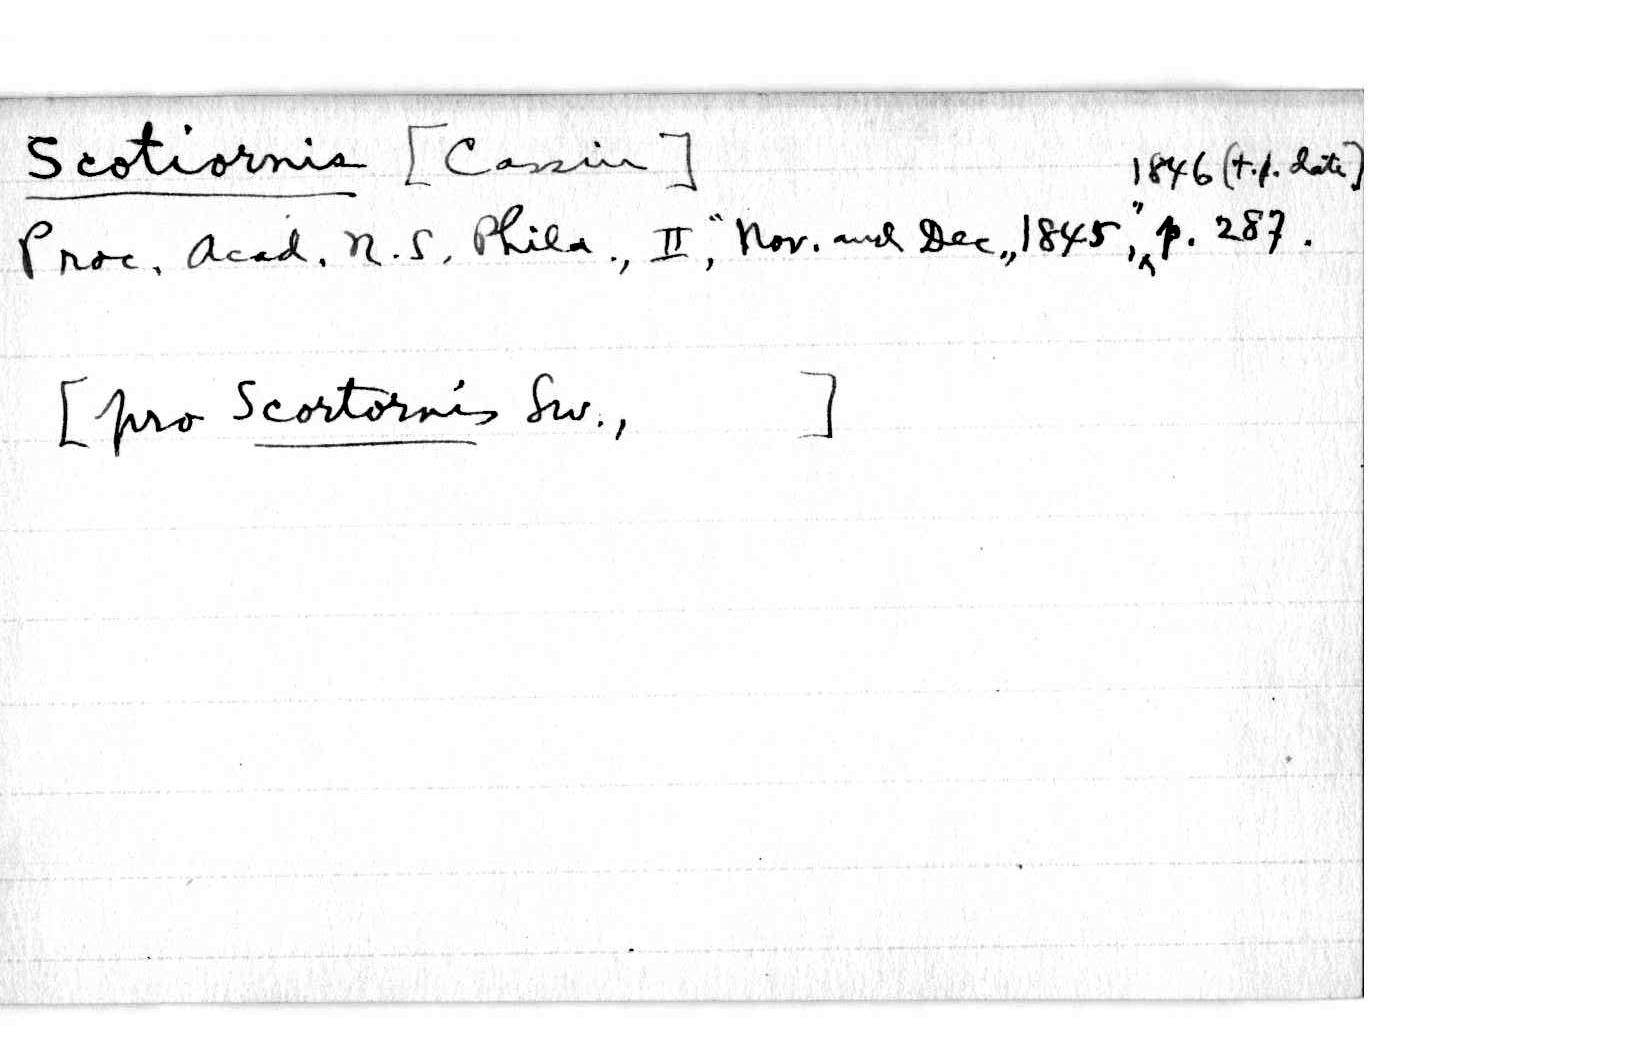 Scotiornis [Cassin]
1846 (t.p. date]
Proc. Acad. N.S. Phila., II, "Nov. and Dec., 1845," p. 287.
[pro Scortornis Sw., ]